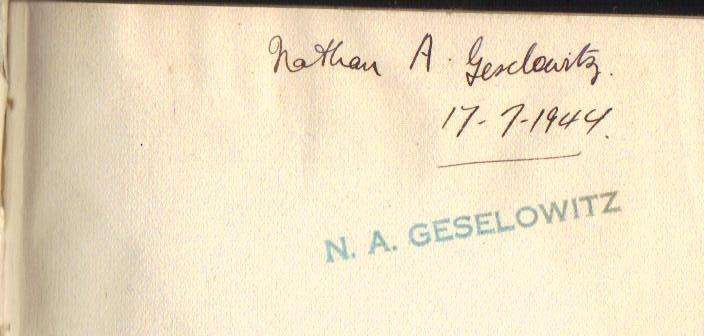 Nathan A. Geselowitz.
17-7-1944.
N. A. GESELOWITZ